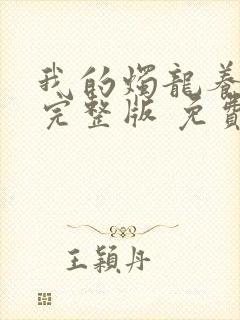 我的燭龍養
完整版 免費
王穎丹